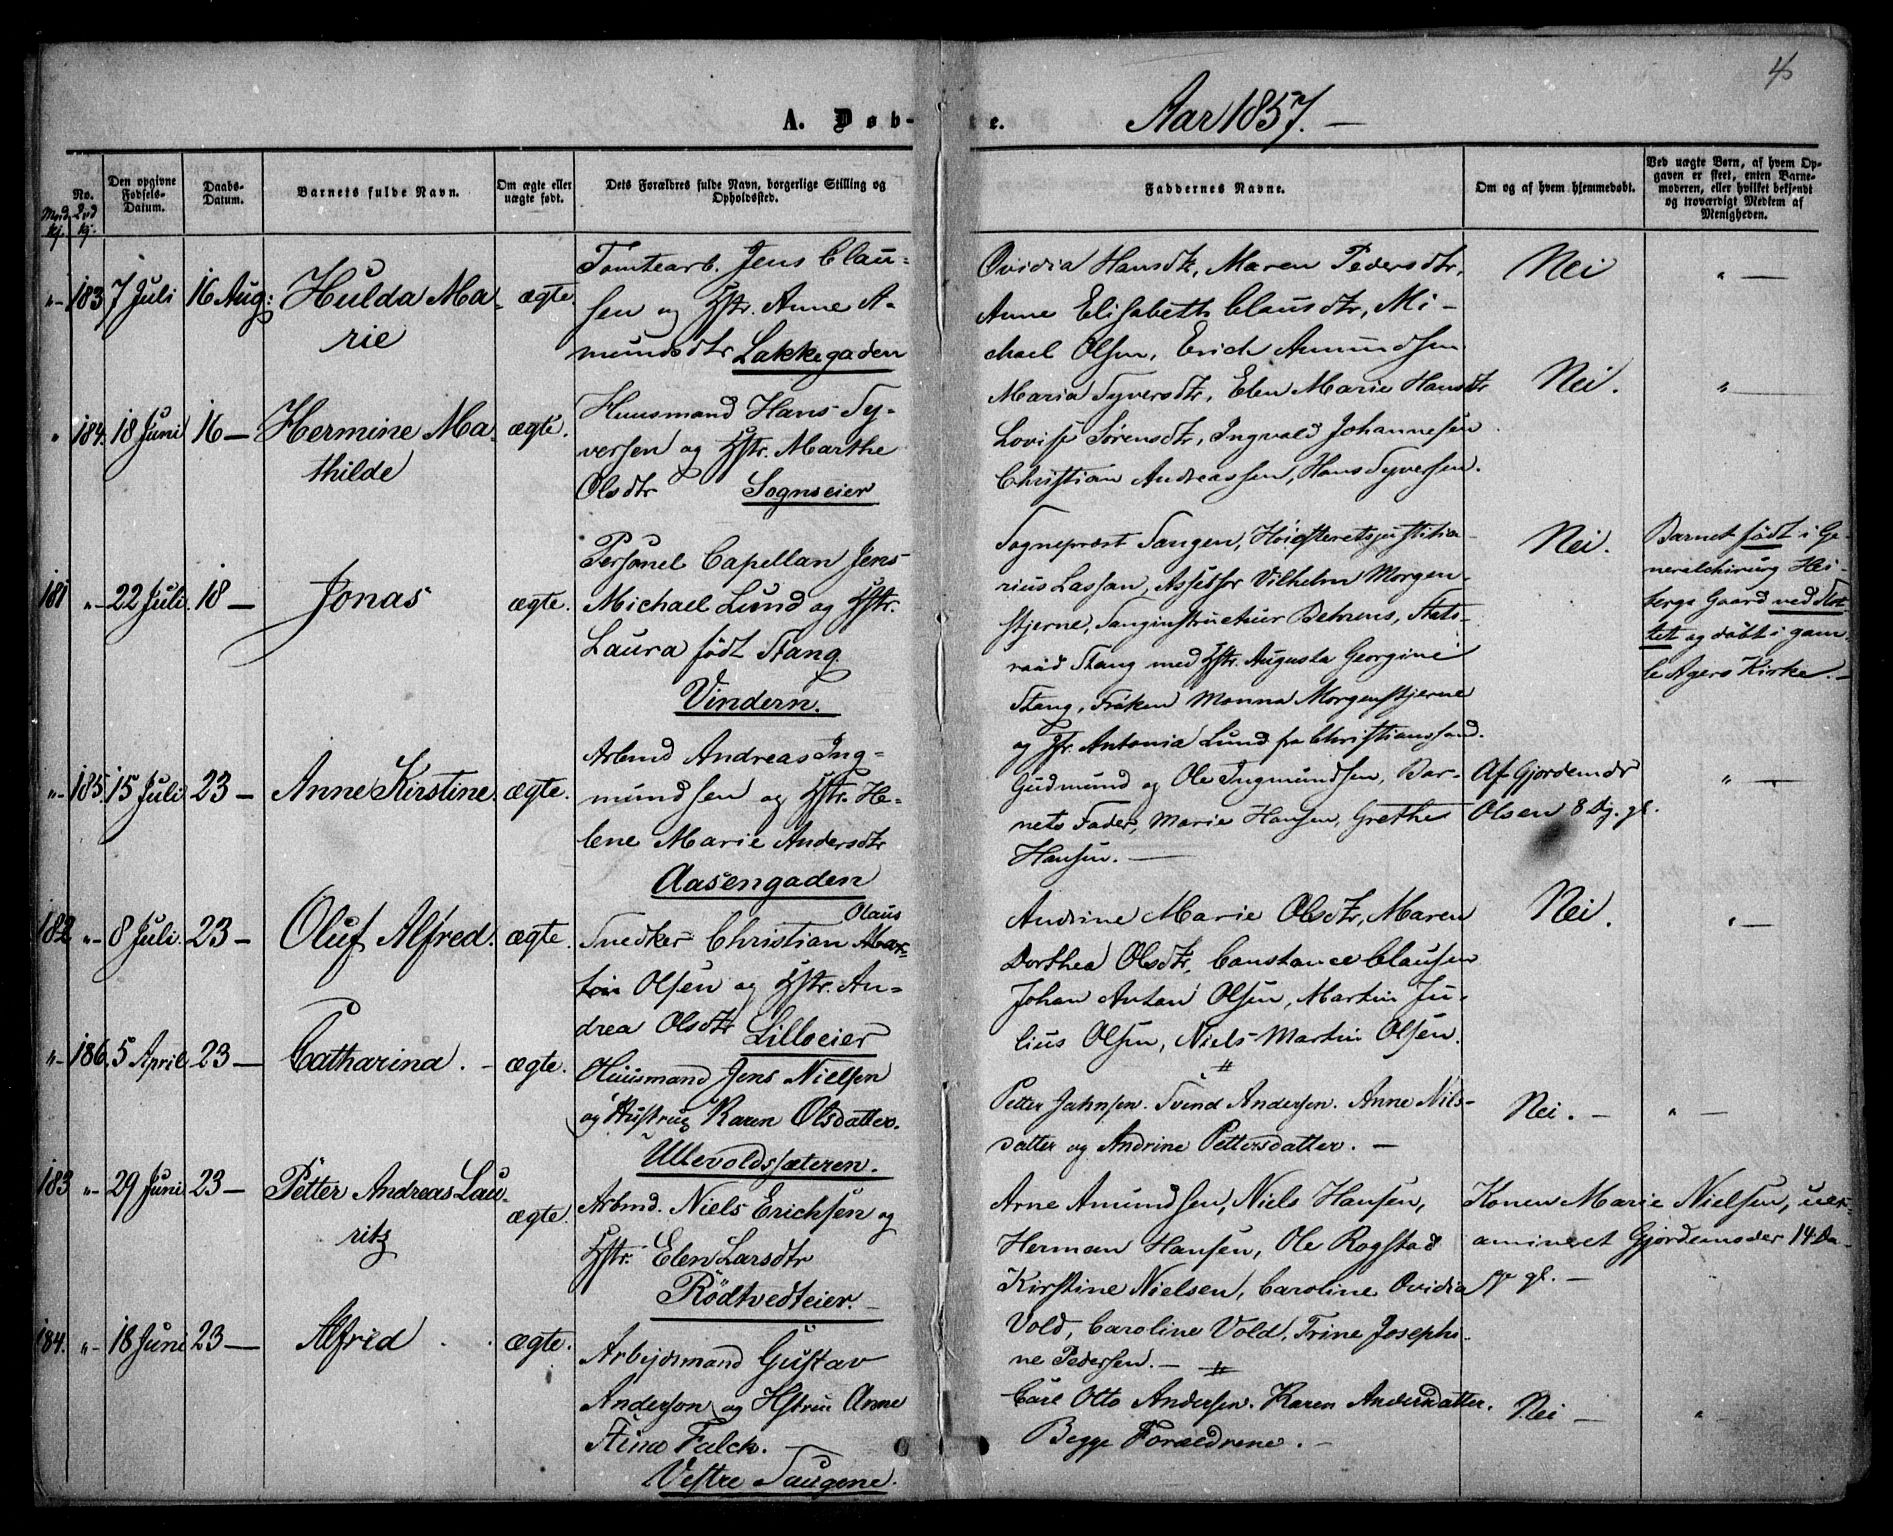 4
A. Døb-
te.
Aar 1857. —
No.
Mandkj.
Qvdkj.
Den opgivne Fødsels-Datum.
Daabs-Datum.
Barnets fulde Navn.
Om ægte eller uægte født.
Dets Forældres fulde Navn, borgerlige Stilling og Opholdssted.
Faddernes Navne.
Om og af hvem hjemmedøbt.
Ved uægte Børn, af hvem Opgaven er skeet, enten Barnemoderen, eller hvilket bekjendt og troværdigt Medlem af Menigheden.
"- 183 7 Juli 16 Aug: Hulda Ma-
rie
ægte.
Tomtearb. Jens Clau-
sen og Hstr. Anne A-
mundsdtr Lakkegaden
Ovidia Hansdtr, Maren Pedersdtr,
Anne Elisabeth Clausdtr, Mi-
chael Olsen, Erich Amundsen
Nei
" —
" 184. 18 Juni 16 — Hermine Ma-
thilde
ægte.
Huusmand Hans Sy-
versen og Hstr. Marthe
Olsdtr Sognseier
Maria Syversdtr, Elen Marie Hansdtr
Lovise Sørensdtr, Ingvald Johannesen
Christian Andreassen, Hans Syversen.
Nei.
" —
181 "- 22 Juli. 18 — Jonas
ægte.
Personel Capellan Jens
Michael Lund og Hstr.
Laura født Stang.
Vindern.
Sognepræst Tangen, Høiesteretsjustitia-
rius Lassen, Assessor Vilhelm Morgen-
stjerne, Sanginstructeur Behrens, Stats-
raad Stang med Hstr. Augusta Georgine
Stang, Frøken Manna Morgenstjerne
og Jfr. Antonia Lund fra Christianssand.
Nei.
Barnet født i Ge-
neralchirurg Hei-
bergs Gaard ved Slot-
tet og døbt i gam-
le Agers Kirke. —
"- 185. 15 Juli 23 — Anne Kirstine.
ægte.
Arbmd Andreas Ing-
mundsen og Hstr. He-
lene Marie Andersdtr
Aasengaden
Gudmund og Ole Ingmundsen, Bar-
nets Fader, Marie Hansen, Grethe
Hansen. —
Af Gjordemdr
Olsen 8 Dg. gl.
" —
182 "- 8 Juli. 23 — Oluf Alfred.
ægte.
Snedker Christian Olaus Mar-
tin Olsen og Hstr. An-
drea Olsdtr Lilloeier
Andrine Marie Olsdtr, Maren
Dorthea Olsdtr, Constance Clausen
Johan Anton Olsen, Martin Ju-
lius Olsen, Niels Martin Olsen.
Nei.
" —
"- 186. 5 April 23 — Catharina. -
ægte.
Huusmand Jens Nielsen
og Hustrue Karen Olsdatter.
Ullevoldssæteren.
Petter Jahnsen. Svend Andersen. Anne Nils-
datter og Andrine Pettersdatter. —
Nei. —
" —
183 "- 29 Juni 23 — Petter Andreas Lau-
ritz
ægte.
Arbmd. Niels Erichsen og
Hstr. Elen Larsdtr
Rödtvedteier. —
Arne Amundsen, Niels Hansen,
Herman Hansen, Ole Rogstad
Kirstine Nielsen, Caroline Ovidia
Vold, Caroline Vold, Trine Josephi-
ne Pedersen. —
Konen Marie Nielsen, uex-
amineret Gjordemoder 14 Da-
ge gl. —
184. "- 18 Juni 23 — Alfred
ægte.
Arbeidsmand Gustav
Anderson og Hstrue Anne
Stina Falck. —
Vestre Saugene.
Carl Otto Andersen. Karen Andersdatter.
Begge Forældrene. —
Nei —
" —